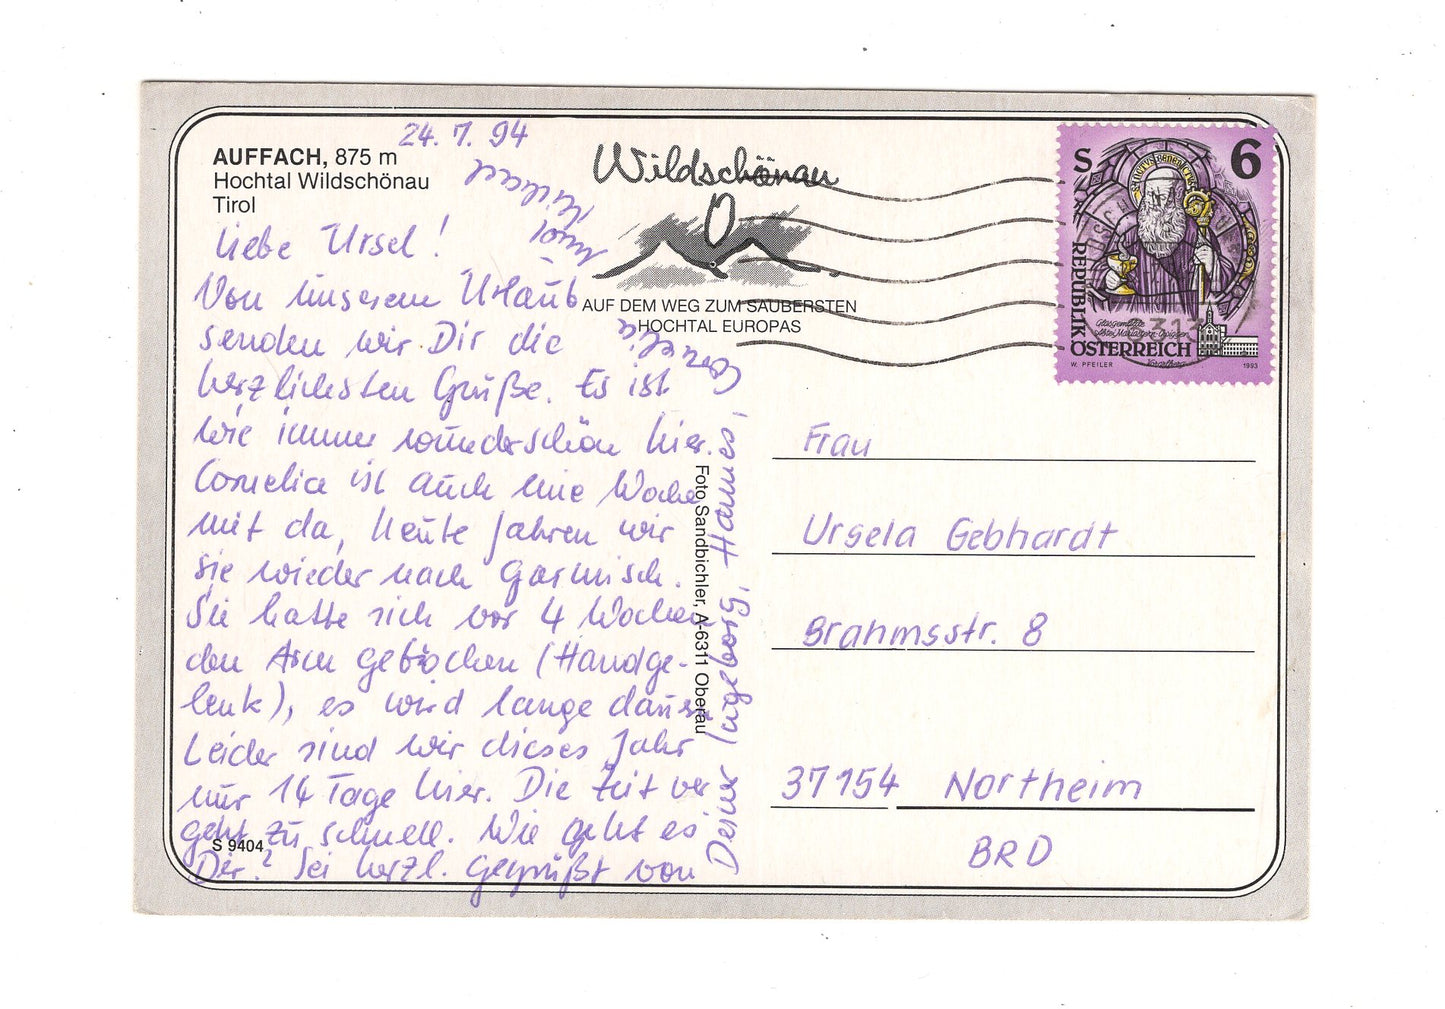 AUFFACH, 875 m
Hochtal Wildschönau
Tirol
24. 7. 94
Liebe Ursel!
Von unserem Urlaub
senden wir Dir die
herzlichsten Grüße. Es ist
wie immer wunderschön hier.
Cornelia ist auch eine Woche
mit da, heute fahren wir
sie wieder nach Garmisch.
Sie hatte sich vor 4 Wochen
den Arm gebrochen (Handge-
lenk), es wird lange dauern.
Leider sind wir dieses Jahr
nur 14 Tage hier. Die Zeit ver
geht zu schnell. Wie geht es
Dir? Sei herzl. gegrüßt von
Deiner Ingeborg, Hannes,
Cornelia
und
S 9404
Foto Sandbichler, A-6311 Oberau
Wildschönau
AUF DEM WEG ZUM SAUBERSTEN
HOCHTAL EUROPAS
S 6
REPUBLIK
ÖSTERREICH
W. PFEILER
1993
Frau
Ursela Gebhardt
Brahmsstr. 8
37154 Northeim
BRD